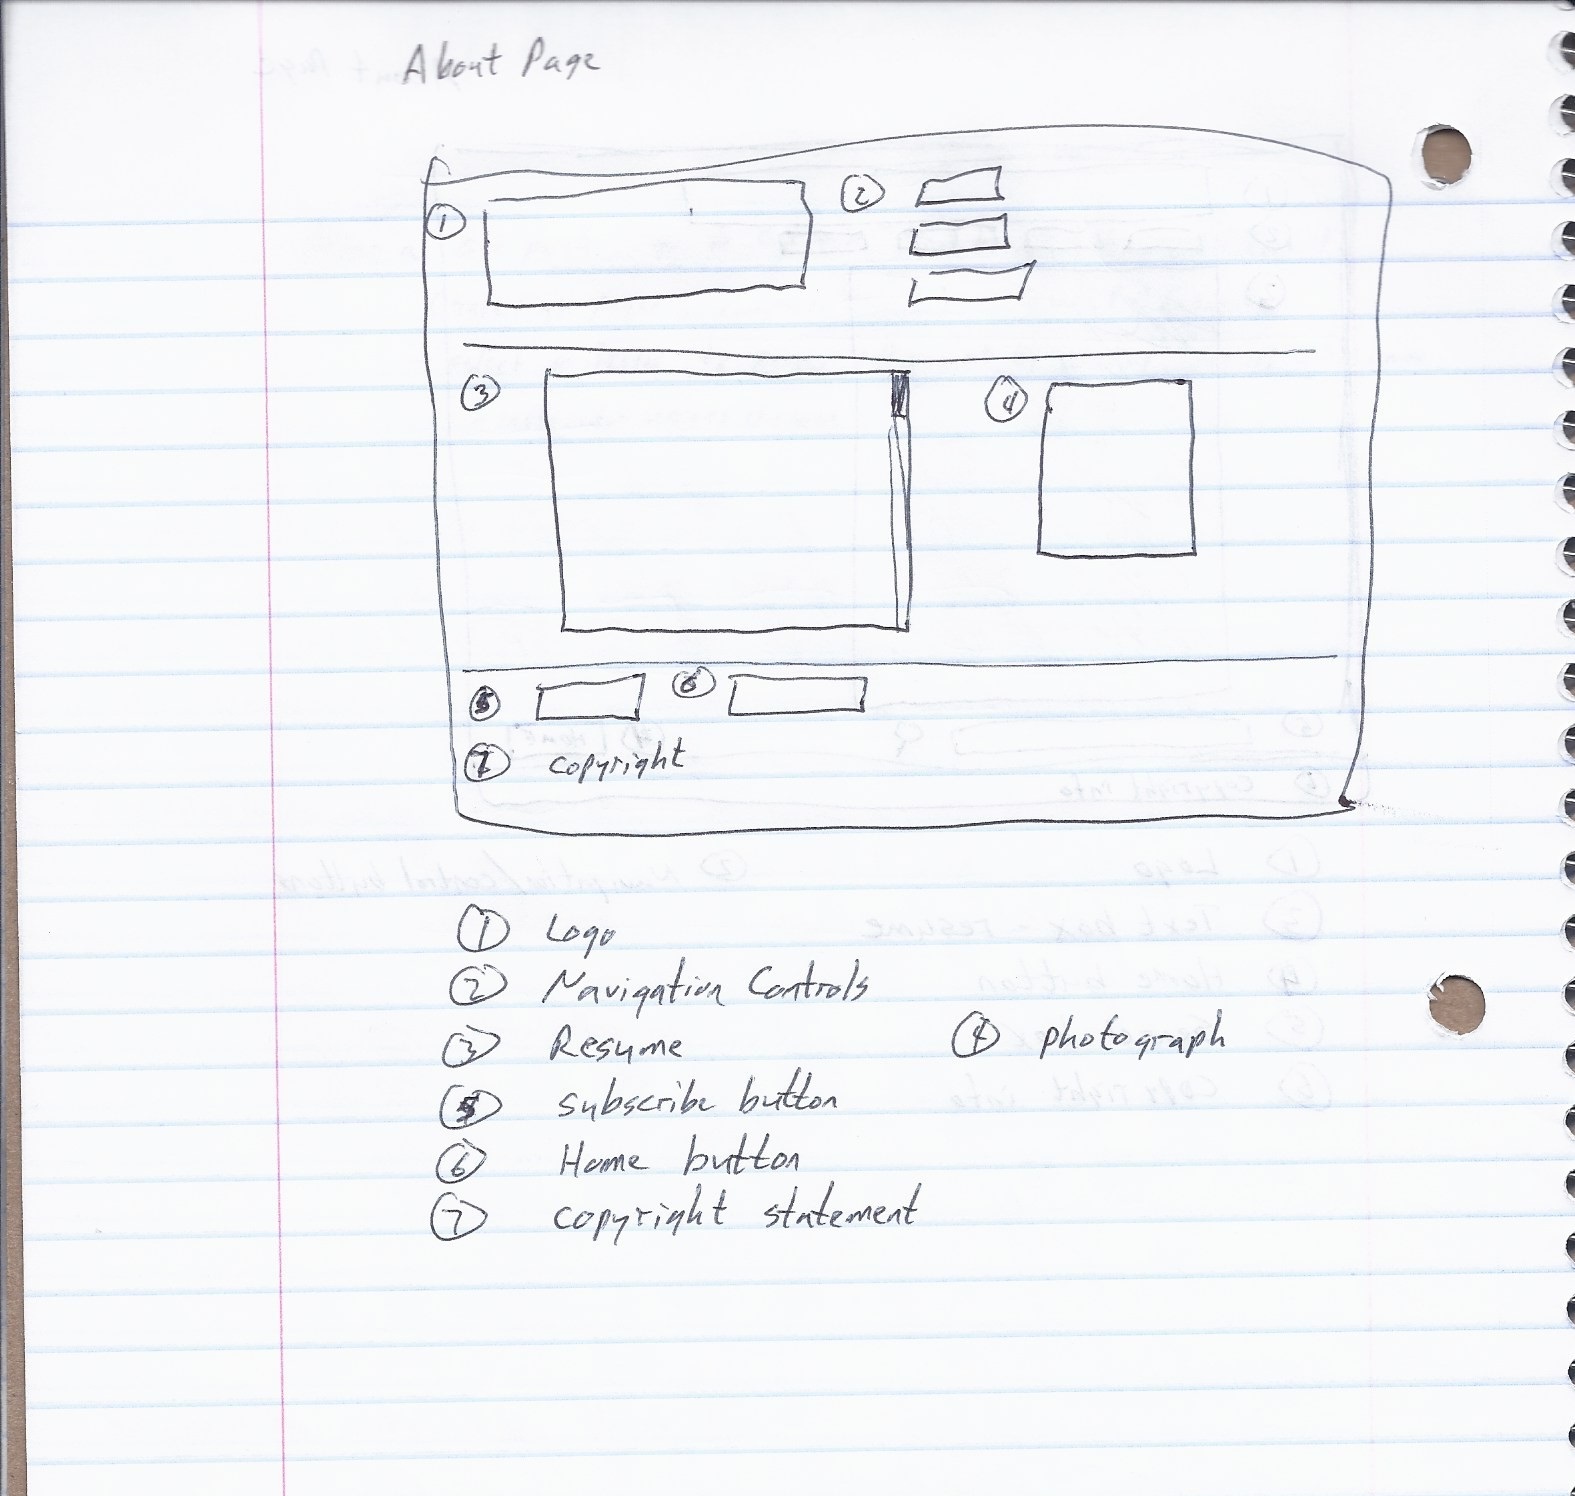 About Page
1
2
3
4
5
6
7 copyright
1 Logo
2 Navigation Controls
3 Resume
4 photograph
5 subscribe button
6 Home button
7 copyright statement